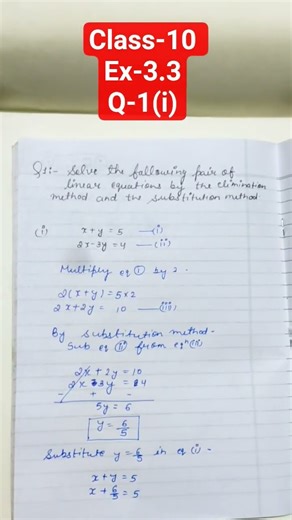 Class-10
Ex-3.3
Q-1(i)
Q1:- Solve the following pair of
linear equations by the elimination
method and the substitution method
(i) x+y = 5 —(i)
2x-3y = 4 —(ii)
Multiply eq ① by 2.
2(x+y) = 5x2
2x+2y = 10 —(iii)
By substitution method-
Sub eq (ii) from eqⁿ(iii)
2x + 2y = 10
2x 3y = 4
- + -
5y = 6
y = 6/5
Substitute y = 6/5 in eq (i) -
x+y = 5
x + 6/5 = 5